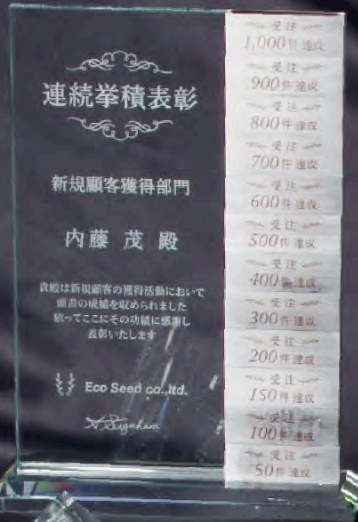 連続挙積表彰
新規顧客獲得部門
内藤 茂 殿
貴殿は新規顧客の獲得活動において
頭書の成績を収められました
依ってここにその功績に感謝し
表彰いたします
Eco Seed co.,ltd.
受注
1,000件達成
受注
900件達成
受注
800件達成
受注
700件達成
受注
600件達成
受注
500件達成
受注
400件達成
受注
300件達成
受注
200件達成
受注
150件達成
受注
100件達成
受注
50件達成